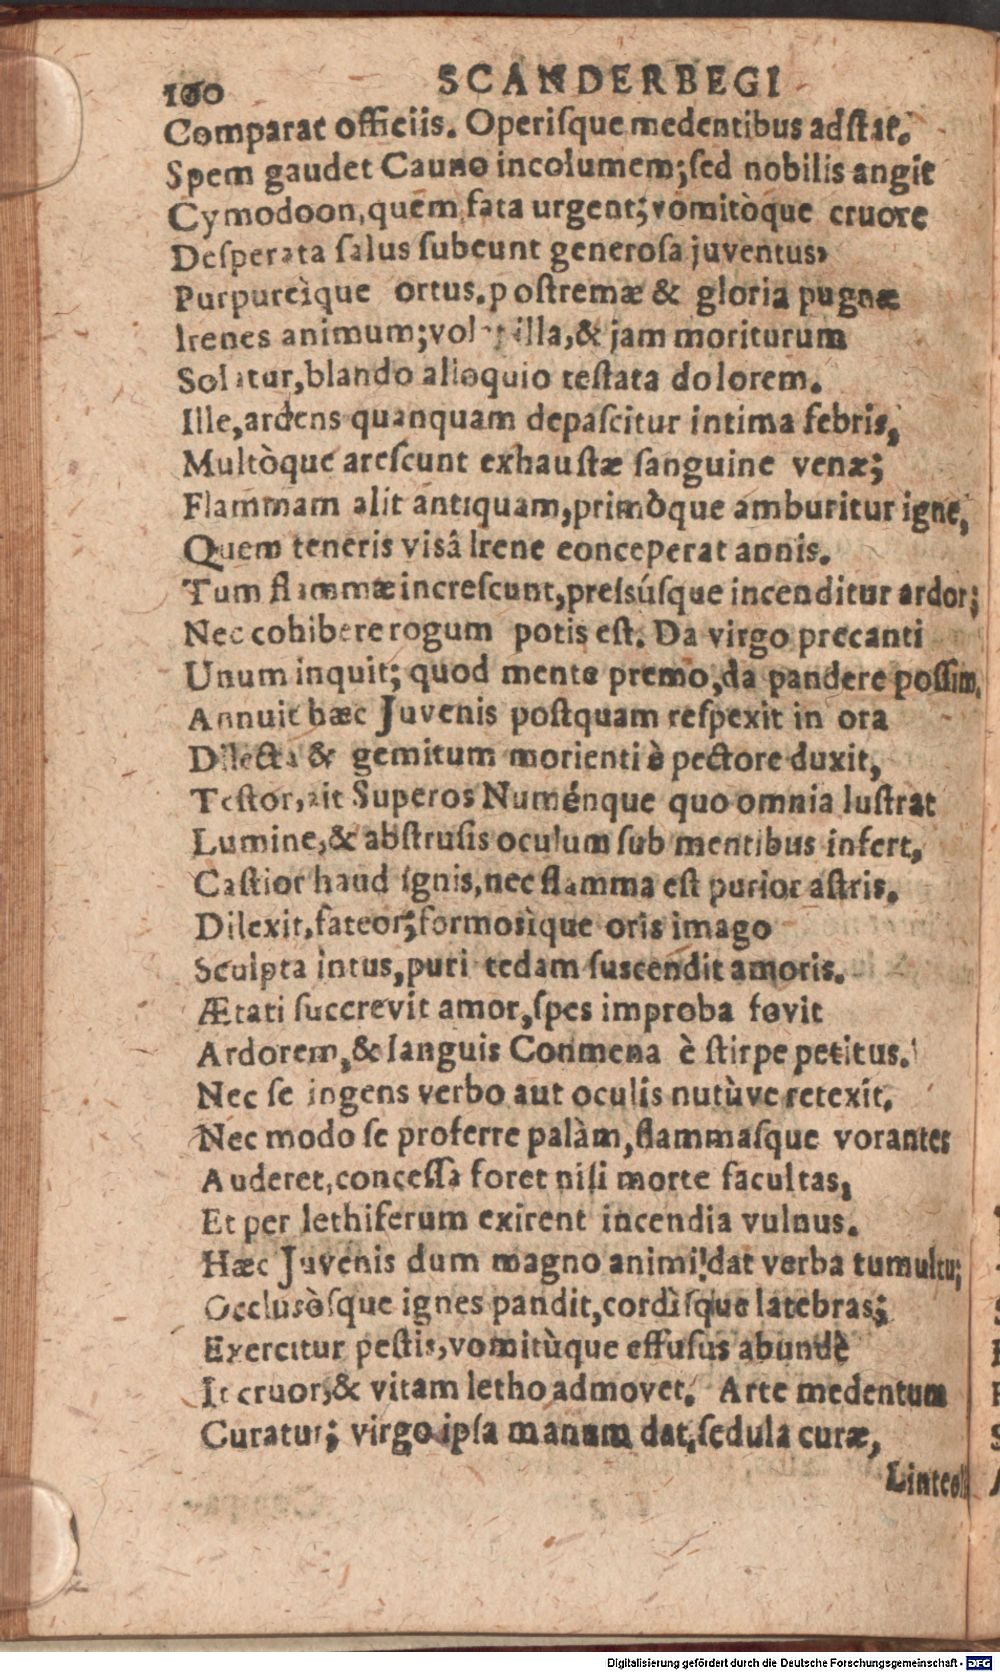 160 SCANDERBEGI
Comparat officiis. Operiſque medentibus adſtat.
Spem gaudet Cauno incolumem; ſed nobilis angit
Cymodoon, quem fata urgent; vomitòque cruore
Deſperata ſalus ſubeunt generoſa juventus,
Purpureìque ortus. poſtremæ & gloria pugnæ
Irenes animum; illa, & jam moriturum
Solatur, blando alloquio teſtata dolorem.
Ille, ardens quanquam depaſcitur intima febris,
Multòque areſcunt exhauſtæ ſanguine venæ;
Flammam alit antiquam, primòque amburitur igne,
Quem teneris viſâ Irene conceperat annis.
Tum flammæ increſcunt, preſsúſque incenditur ardor;
Nec cohibere rogum potis eſt. Da virgo precanti
Unum inquit; quod mente premo, da pandere poſſim.
Annuit hæc Juvenis poſtquam reſpexit in ora
Dilecta & gemitum morienti è pectore duxit,
Teſtor, ait Superos Numénque quo omnia luſtrat
Lumine, & abſtruſis oculum ſub mentibus infert,
Caſtior haud ignis, nec flamma eſt purior aſtris.
Dilexit, fateor; formosìque oris imago
Sculpta intus, puri tedam ſuscendit amoris.
Ætati ſuccrevit amor, ſpes improba fovit
Ardorem, & ſanguis Conmena è ſtirpe petitus.
Nec ſe ingens verbo aut oculis nutùve retexit.
Nec modo ſe proferre palàm, flammaſque vorantes
Auderet, conceſſa foret niſi morte facultas,
Et per lethiferum exirent incendia vulnus.
Hæc Juvenis dum magno animi! dat verba tumultu;
Occlusòſque ignes pandit, cordìſque latebras;
Exercitur peſtis, vomitùque effuſus abundè
It cruor, & vitam letho admovet. Arte medentum
Curatur; virgo ipſa manum dat, ſedula curæ,
Linteoli